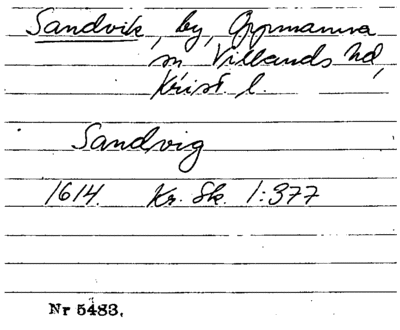 Sandvik, by, Oppmanna
sn Villands hd,
Krist. l.
Sandvig
1614 Kr. Sk. 1:377
Nr 5483.